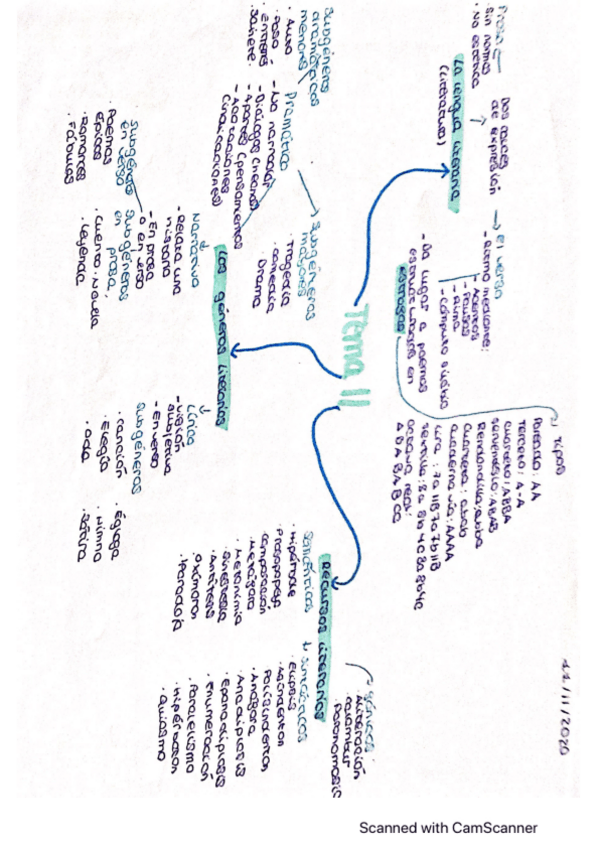 11/11/2020
Tema 11
La lengua literaria
(Literatura)
Dos cauces
de expresión
Prosa
· sin normas
· No estética
El verso
- Ritmo mediante:
Acentos
- Pausas
- Rima
- Cómputo silábico
- Da lugar a poemas
estructurados en
estrofas
Tipos
Pareado: AA
Terceto: A-A
Cuarteto: ABBA
Serventesio: ABAB
Redondilla: abba
Cuarteta: abab
cuaderna vía: AAAA
Lira: 7a 11B 7a 7b 11B
octava real:
ABABABCC
Los géneros literarios
Dramático
- No narración
- Diálogos
- Apartes (pensamientos
- Acotaciones
(indicaciones
Subgéneros
mayores
Tragedia
· comedia
Drama
Subgéneros
dramáticos
menores
· Auto
· Paso
· Entremés
· Sainete
Narrativo
- Relata una
historia
- En prosa
o en verso
Subgéneros
en prosa
· Cuento · Novela
· Leyenda
Subgéneros
en verso
· Poemas
épicos
· Romances
· Fábulas
Lírica
- Visión
subjetiva
- En verso
Subgéneros
· canción
· Elegía
· Oda
· Égloga
· Himno
· Sátira
Recursos literarios
Semánticos
· Hipérbole
· Prosopopeya
· comparación
· Metáfora
· Metonimia
· Sinestesia
· Antítesis
· Oxímoron
· Paradoja
Sintácticos
· Elipsis
· Asíndeton
· Polisíndeton
· Anáfora
· Anadiplosis
· Epanadiplosis
· Enumeración
· Paralelismo
· Hipérbaton
· Quiasmo
Fónicos
· Aliteración
· calambur
Paronomasia
Scanned with CamScanner